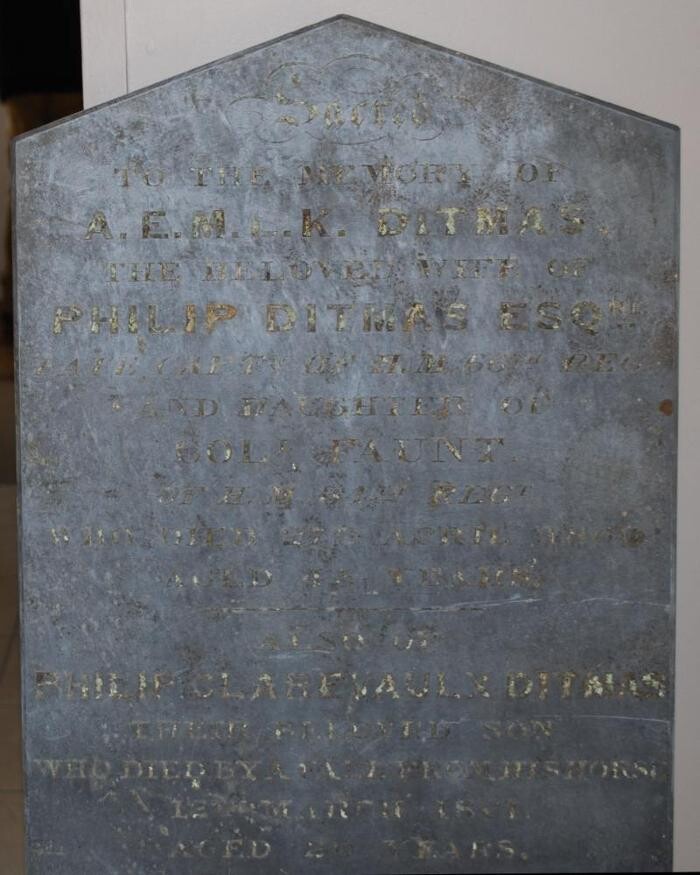 Sacred
TO THE MEMORY OF
A.E.M.L.K. DITMAS.
THE BELOVED WIFE OF
PHILIP DITMAS ESQRE
LATE CAPTN OF H.M. REGT
AND DAUGHTER OF
COLL FAUNT.
OF H.M. REGT
WHO DIED APRIL
AGED YEARS.
ALSO OF
PHILIP CLAREVAULX DITMAS
THEIR BELOVED SON
WHO DIED BY A FALL FROM HIS HORSE
12TH MARCH
AGED YEARS.